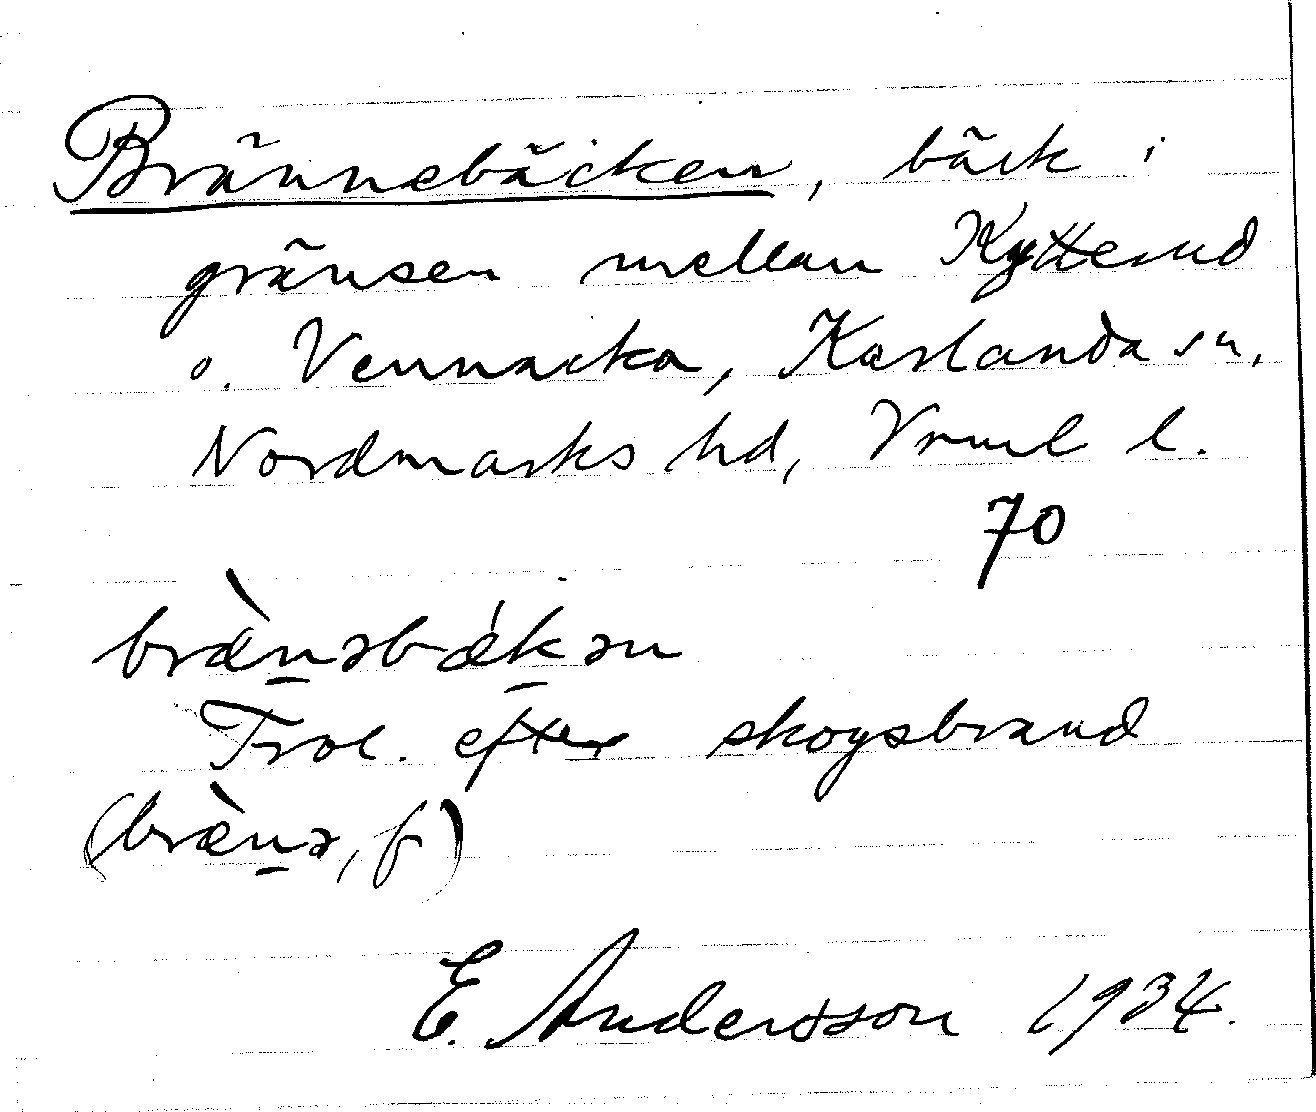 Brännebäcken, bäck i
gränsen mellan Kytterud
o. Vennacka, Karlanda sn,
Nordmarks hd, Vrml l.
70
bræ̀n̲əbǽk̲ən
Trol. efter skogsbrand
(bræ̀n̲ə, f)
E. Andersson 1934.